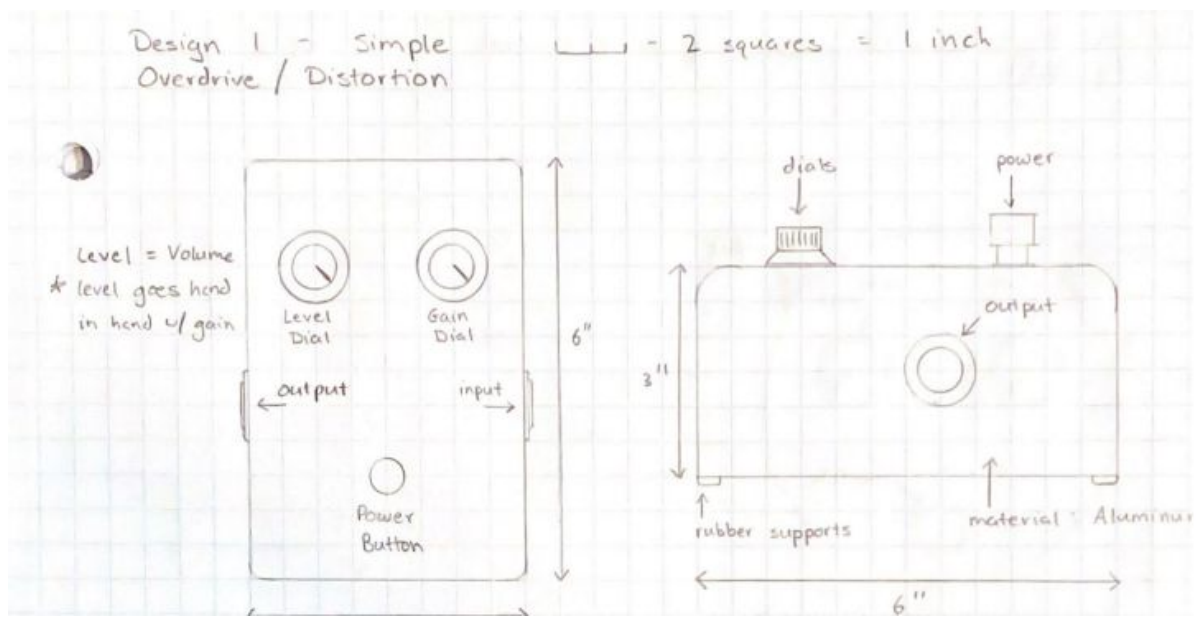 Design 1 - Simple
Overdrive / Distortion
- 2 squares = 1 inch
Level = Volume
* level goes hand
in hand w/ gain
Level
Dial
Gain
Dial
output
input
Power
Button
6"
dials
power
output
3"
rubber supports
material: Aluminum
6"